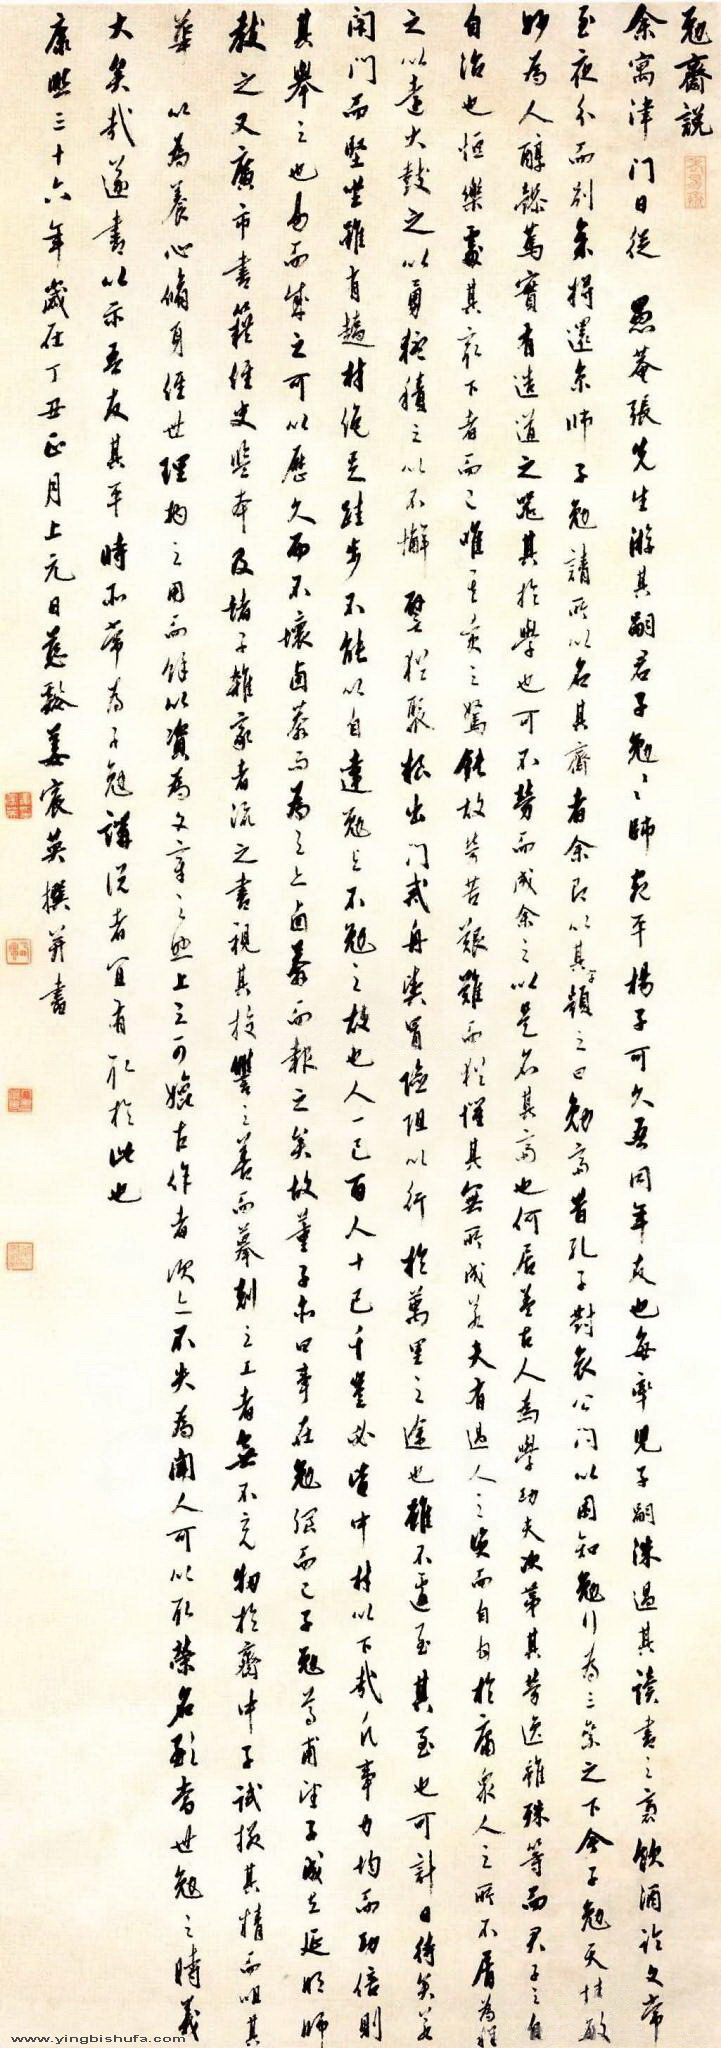 勉齋說
余寓津门日從 愚菴張先生游其嗣君子勉之師宛平楊子可久吾同年友也每率兒子嗣洙過其讀書之裏飲酒論文常
至夜分而别余将還京師子勉請所以名其齋者余即以其字顏之曰勉齋昔孔子對哀公问以困知勉行為三等之下余子勉天性敏
妙為人醇謹篤實有造道之器其於學也可不勞而成余之以是名其齋也何居蓋古人為學功夫次第其勞逸雖殊等而君子之自
自治也恒樂處其最下者而已唯其資之駑鈍故苦艱難而猶懼其無所成若夫有過人之資而自封於庸衆人之所不屑為程
之以遠大鼓之以勇猛積之以不懈 譬猶聚粮出门戒舟漿冒險阻以行於萬里之途也雖不遽至其至也可計日待矣若
閉門而堅坐雖有趫材絶足跬步不能以自達勉与不勉之故也人一己百人十己千豈必皆中材以下哉凡事力均而功倍則
其舉之也易而成之可以歷久而不壞鹵莽而為之亦鹵莽而報之矣故董子亦曰事在勉强而已子勉尊甫望子成立延明師
教之又廣市書籍經史監本及諸子雜家者流之書視其校讐之善而摹刻之工者無不充牣於齋中子試掇其精而咀其
華 以為養心脩身經世理物之用而餘以資為文章之興上之可媲古作者次亦不失為聞人可以取榮名顯當世勉之時義
大矣哉遂書以示吾友其平時所常為子勉講说者宜有取於此也
康熙三十六年歲在丁丑正月上元日慈谿姜宸英撰并書
www.yingbishufa.com